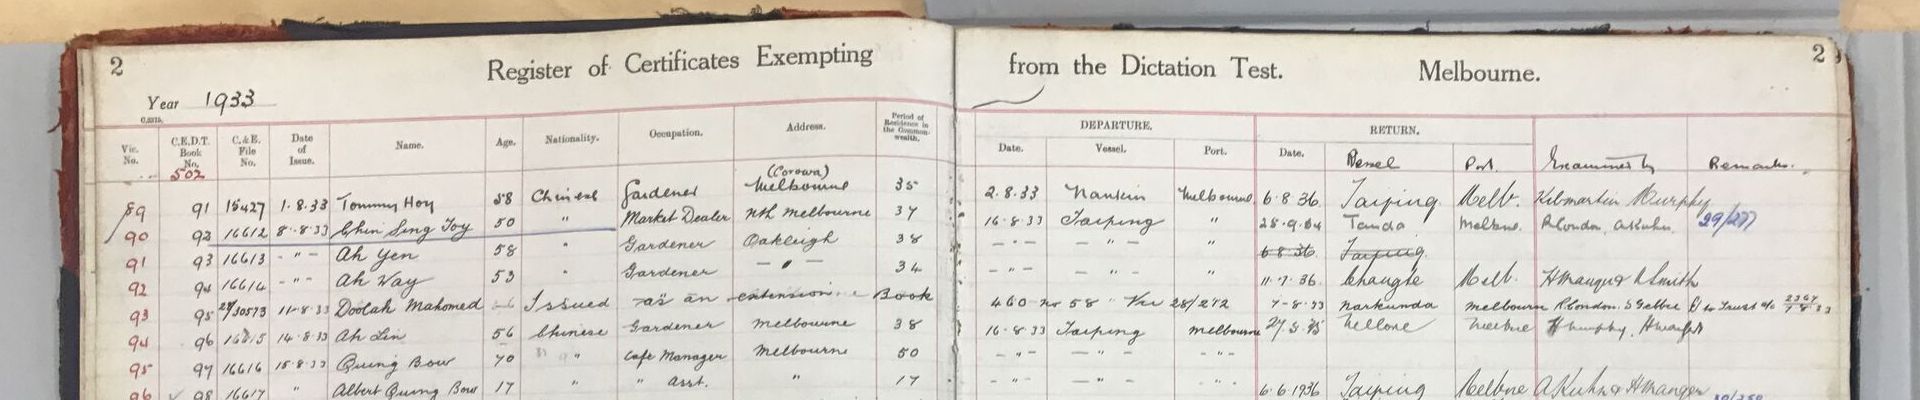 2 Register of Certificates Exempting from the Dictation Test. Melbourne. 2
Year 1933
DEPARTURE. RETURN.
Vic. No. C.E.D.T. Book No. 502 C.&E. File No. Date of Issue. Name. Age. Nationality. Occupation. Address. Period of Residence in the Common-wealth. Date. Vessel. Port. Date. Vessel Port. Examined by Remarks.
89 91 15427 1.8.33 Tommy Hoy 58 Chinese Gardener (Corowa) Melbourne 35 2.8.33 Nankin Melbourne 6.8.36 Taiping Melb. Kilmartin Murphy
90 92 16612 8.8.33 Chin Sing Toy 50 " Market Dealer Nth Melbourne 37 16.8.33 Taiping " 28.9.34 Tanda Melbne. R London, A Kuhn 29/277
91 93 16613 - " - Ah Yen 58 " Gardener Oakleigh 38 - " - - " - " 6.8.36 Taiping
92 94 16614 - " - Ah Way 53 " Gardener - " - 34 - " - - " - " 11.7.36 Changte Melb. H Mauger & Smith
93 95 29/30573 11.8.33 Doolah Mahomed Issued as an extension Book 460 No 58 Vic 28/272 7-8-33 Narkunda Melbourne R London.
94 96 14.8.33 Ah Lin 56 Chinese Gardener Melbourne 38 16.8.33 Taiping Melbourne Nellore
95 97 16616 15.8.33 Quing Bow 70 " Cafe Manager Melbourne 50 - " - - " - - " -
96 98 16617 " Albert Quing Bow 17 " " Asst. " 17 - " - - " - - " - 6.6.1936 Taiping Melbne A Kuhn & H Mauger